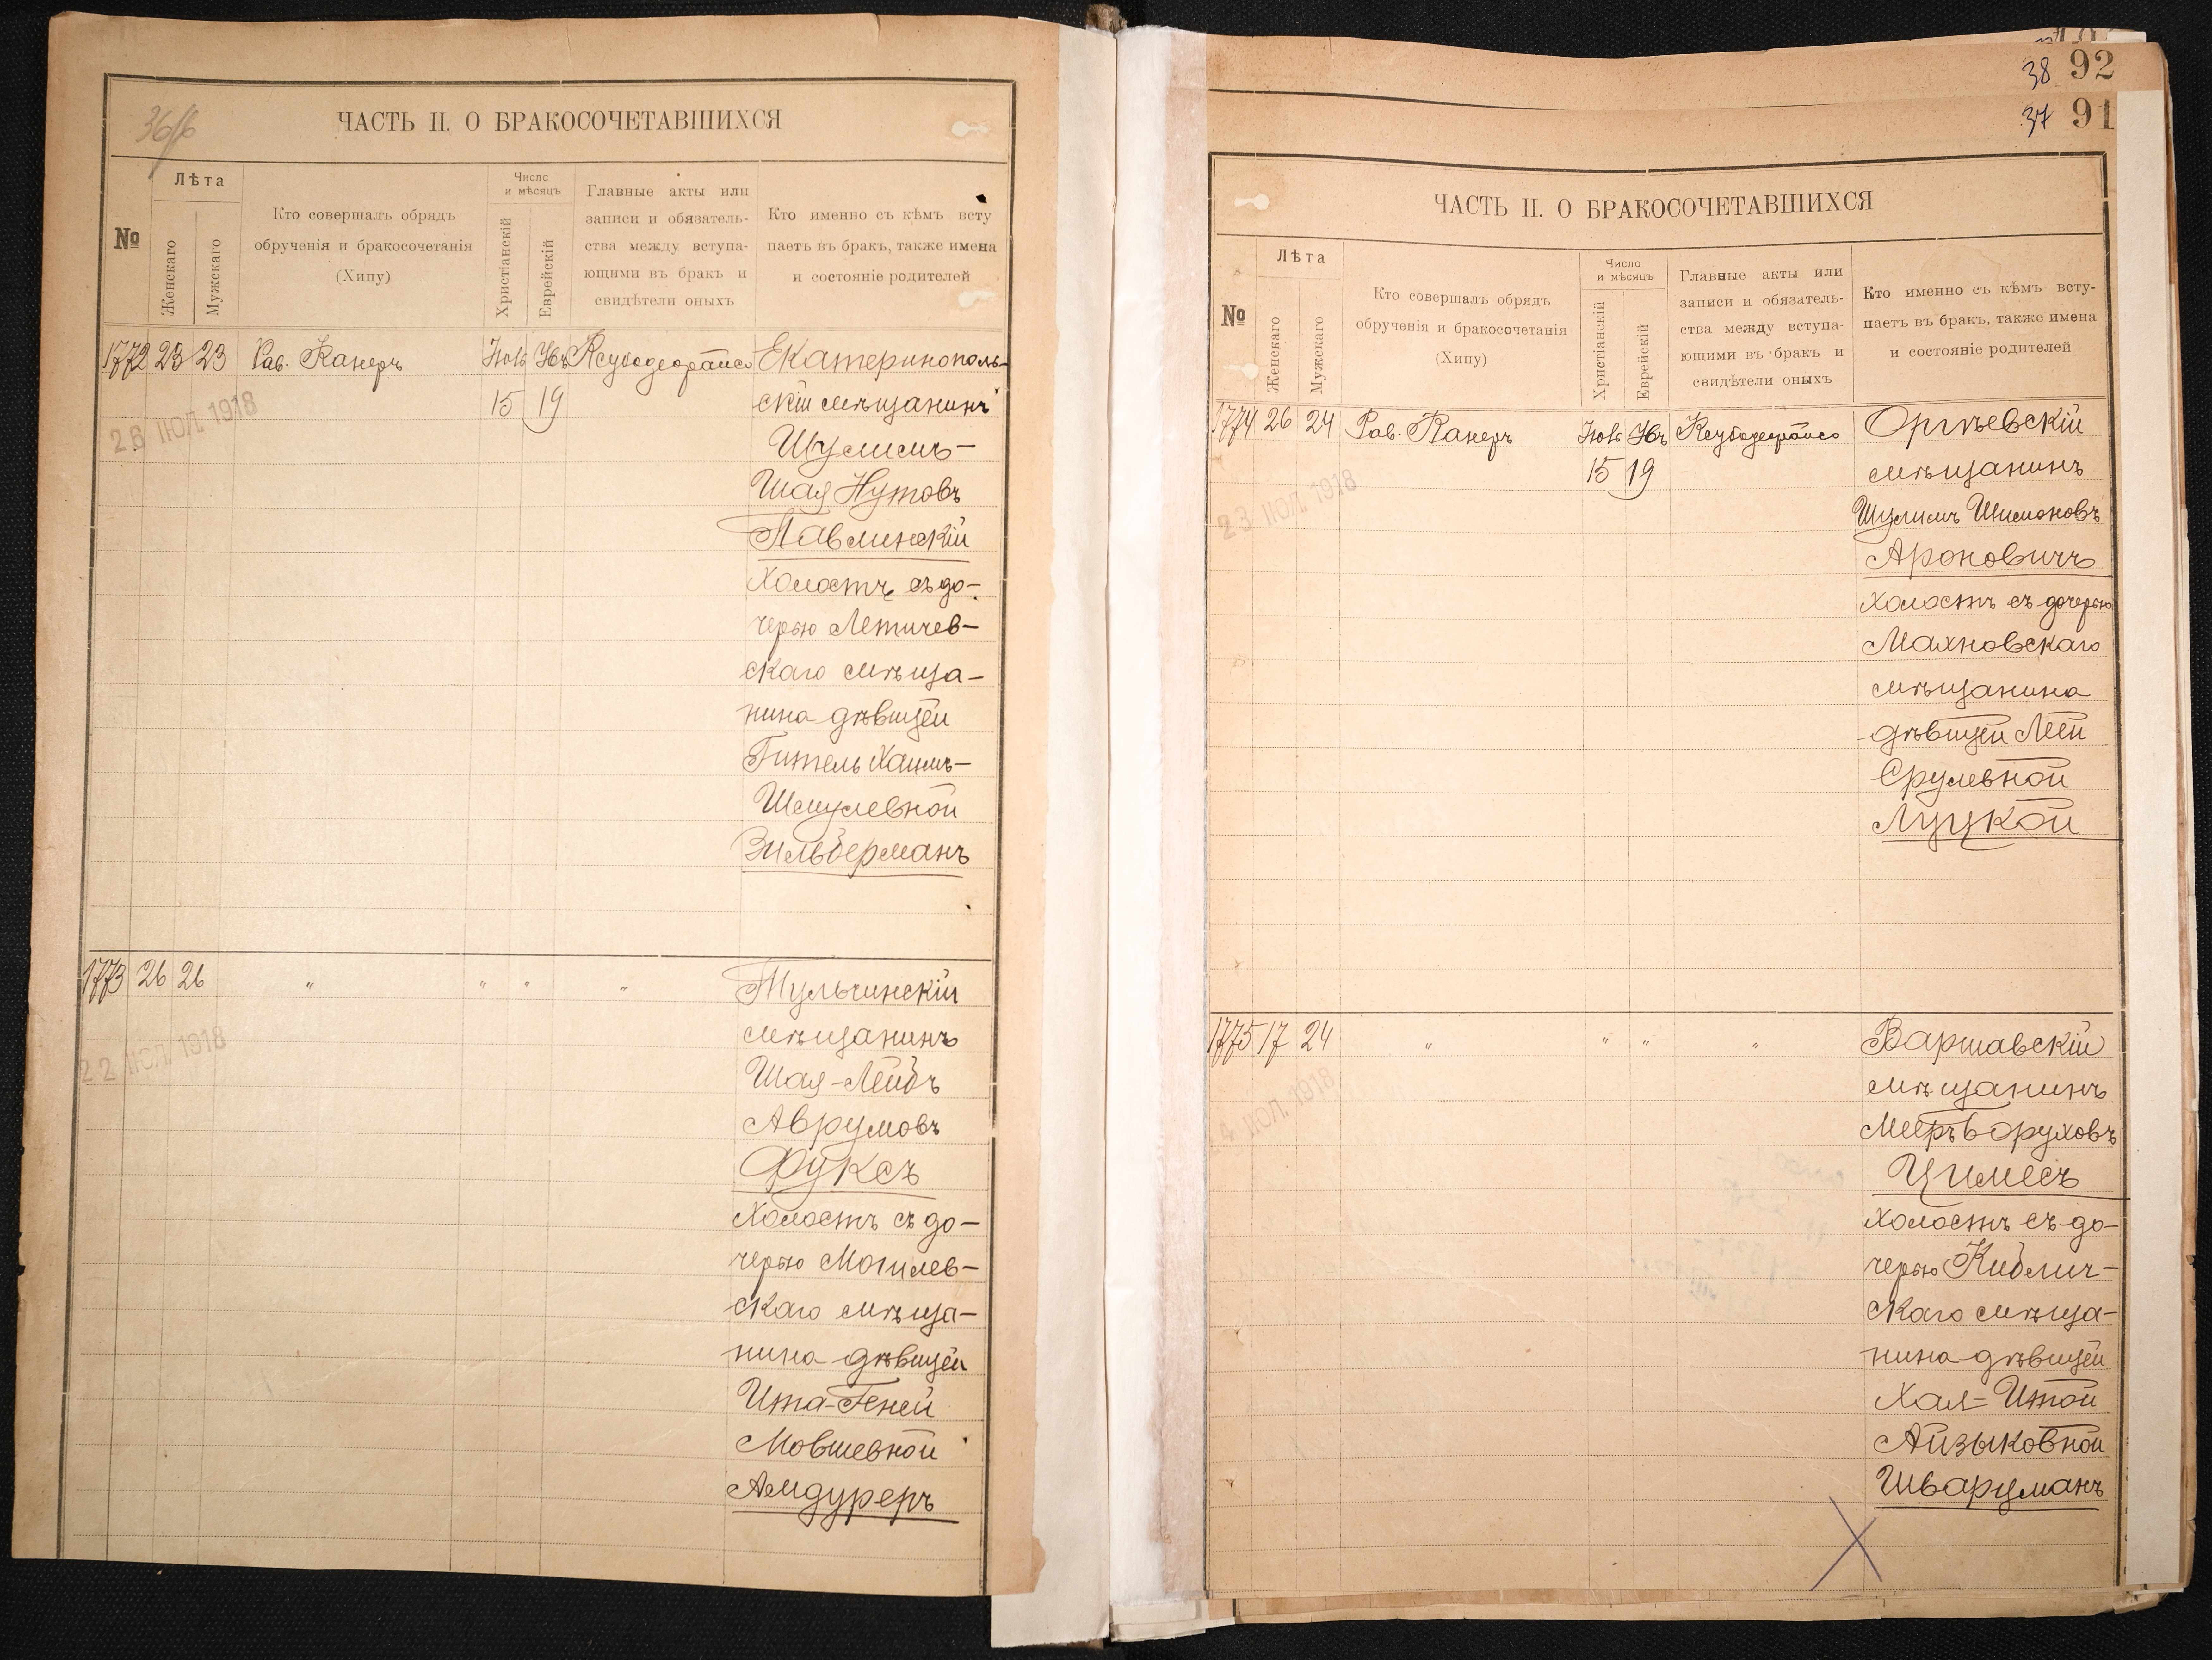 36/6
ЧАСТЬ II. О БРАКОСОЧЕТАВШИХСЯ
№
Лѣта
Женскаго
Мужскаго
Кто совершалъ обрядъ
обрученія и бракосочетанія
(Хипу)
Число
и мѣсяцъ
Христіанскій
Еврейскій
Главные акты или
записи и обязатель-
ства между вступа-
ющими въ бракъ и
свидѣтели оныхъ
Кто именно съ кѣмъ всту
паетъ въ бракъ, также имена
и состояніе родителей
1772 23 23 Рав. Канеръ Екатеринополь-
15 19 скій мѣщанинъ
Шулимъ-
Шая Нутовъ
Павлинскій
холостъ съ до-
черью Летичев-
скаго мѣща-
нина дѣвицей
Гитель Хаимъ-
Шмулевной
Зильберманъ
26 ІЮЛ. 1918
1773 26 26 " " " " Тульчинскій
мѣщанинъ
Шая-Лейбъ
Аврумовъ
Фуксъ
холостъ съ до-
черью Могилев-
скаго мѣща-
нина дѣвицей
Ита-Геней
Мовшевной
Амдуреръ
22 ІЮЛ. 1918
38 92
37 91
ЧАСТЬ II. О БРАКОСОЧЕТАВШИХСЯ
№
Лѣта
Женскаго
Мужскаго
Кто совершалъ обрядъ
обрученія и бракосочетанія
(Хипу)
Число
и мѣсяцъ
Христіанскій
Еврейскій
Главные акты или
записи и обязатель-
ства между вступа-
ющими въ бракъ и
свидѣтели оныхъ
Кто именно съ кѣмъ всту-
паетъ въ бракъ, также имена
и состояніе родителей
1774 26 24 Рав. Канеръ Оргѣевскій
15 19 мѣщанинъ
Шулимъ Шимоновъ
Ароновичъ
холостъ съ дочерью
Махновскаго
мѣщанина
дѣвицей Леей
Срулевной
Луцкой
23 ІЮЛ. 1918
1775 17 24 " " " " Варшавскій
мѣщанинъ
Мееръ Боруховъ
Цимесъ
холостъ съ до-
черью Кибlич-
скаго мѣща-
нина дѣвицей
Хая=Итой
Айзыковной
Шварцманъ
ІЮЛ. 1918